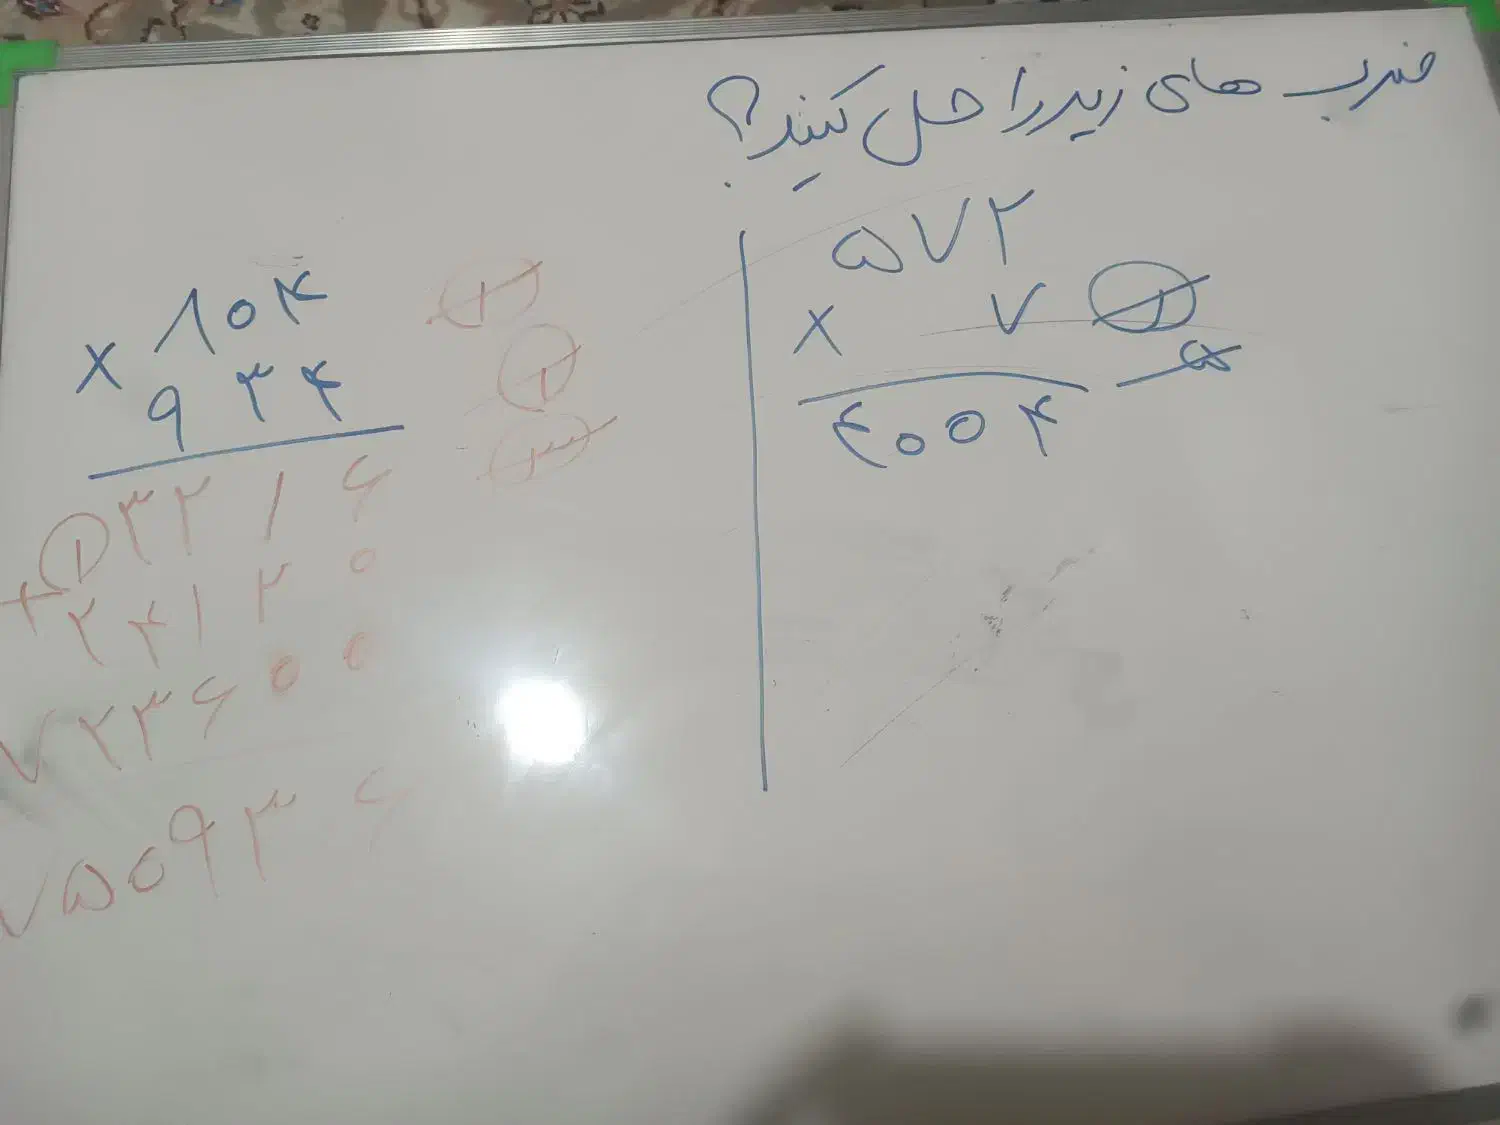 ضرب های زیر را حل کنید؟
۵۷۲
× ۷ ۱
۵
۴۰۰۴
۸۰۴
× ۹۳۴
۱
۱
۳
۳۲۱۶
۱
+ ۲۴۱۲۰
۷۲۳۶۰۰
۷۵۰۹۳۶